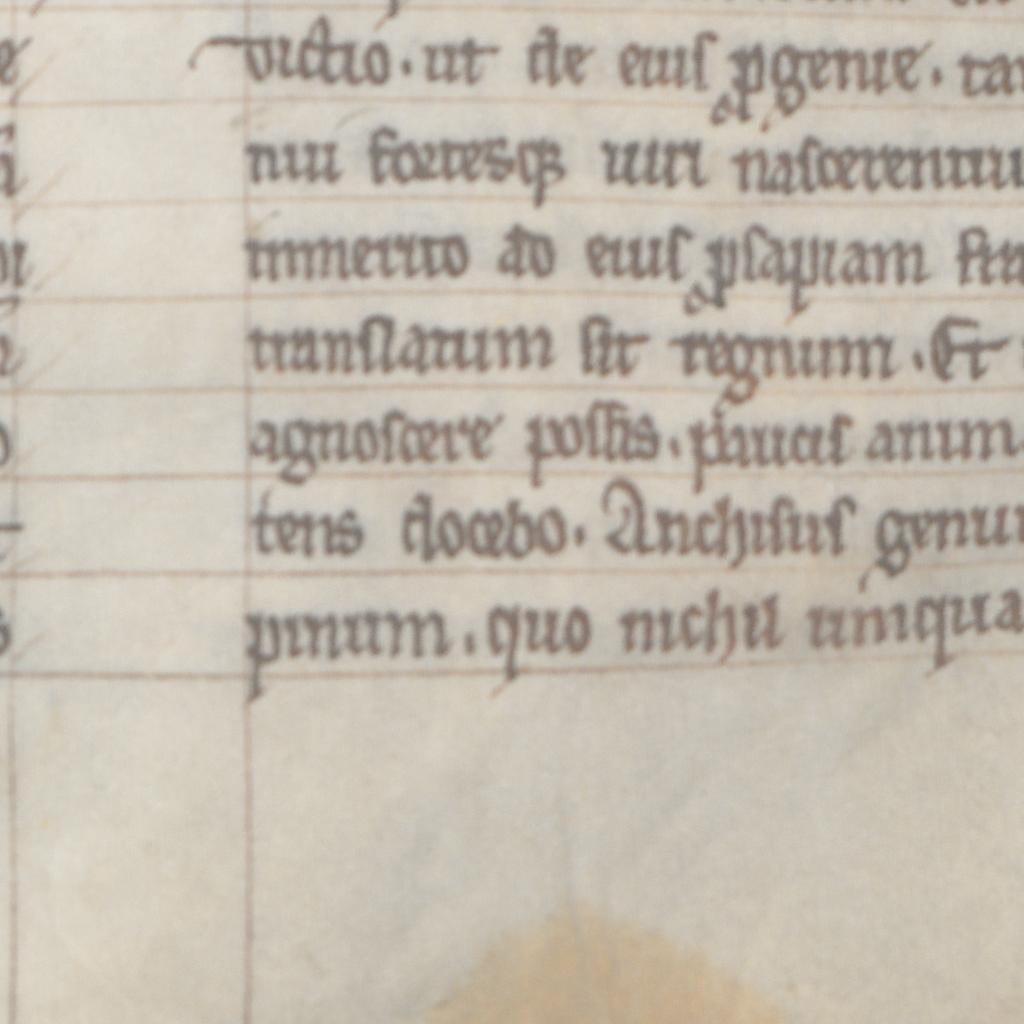 victio. ut de eiuſ ꝓgenie. tan
nui forteſqꝫ uiri naſcerentur
inmerito ad eiuſ ꝓſapiam
tranſlatum ſit regnum. Et
agnoſcere poſſis. paucis anim
tens docebo. Anchiſuſ genui
pinum. quo nichil umqua